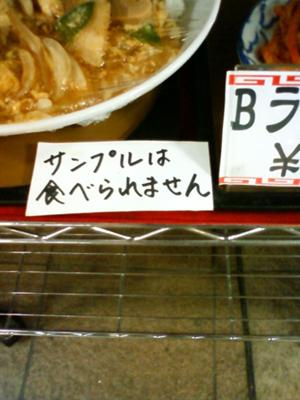 サンプルは
食べられません
Bラ
¥